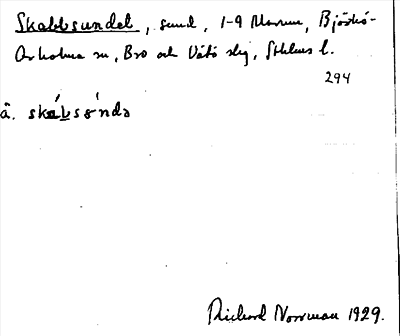 Skabbsundet, sund, 1-9 Marum, Björkö-
Arholma sn, Bro och Vätö slg, Sthlms l.
294
ä. skabsønda
Richard Norrman 1929.